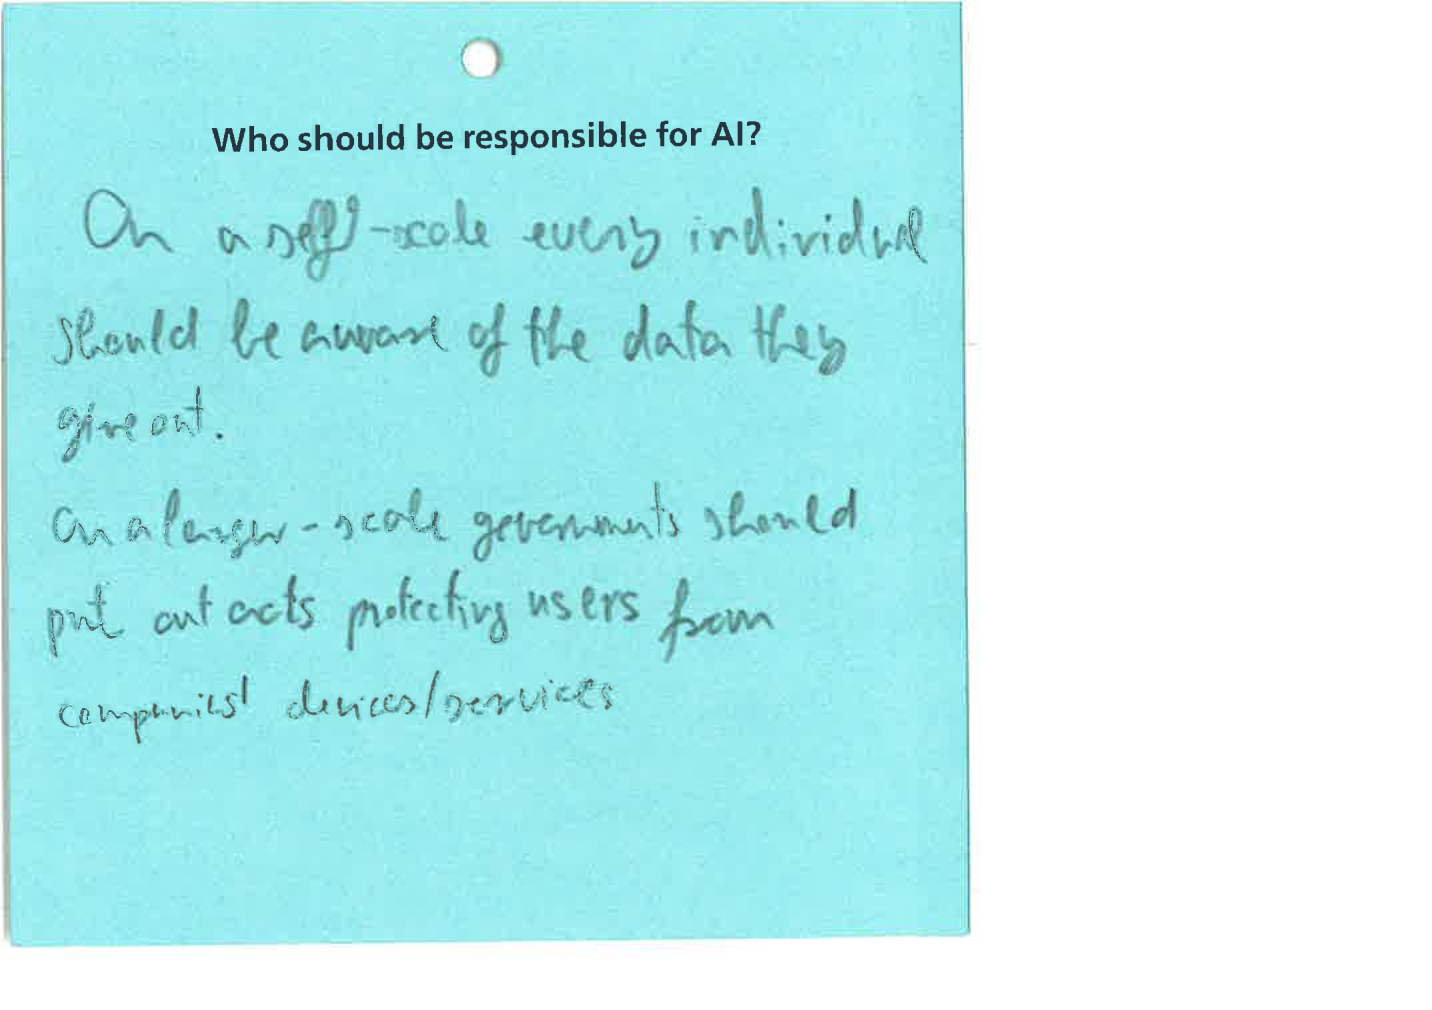 Who should be responsible for AI?
On a self-scale every individual
should be aware of the data they
give out.
On a larger-scale governments should
put out acts protecting users from
companies' devices/services